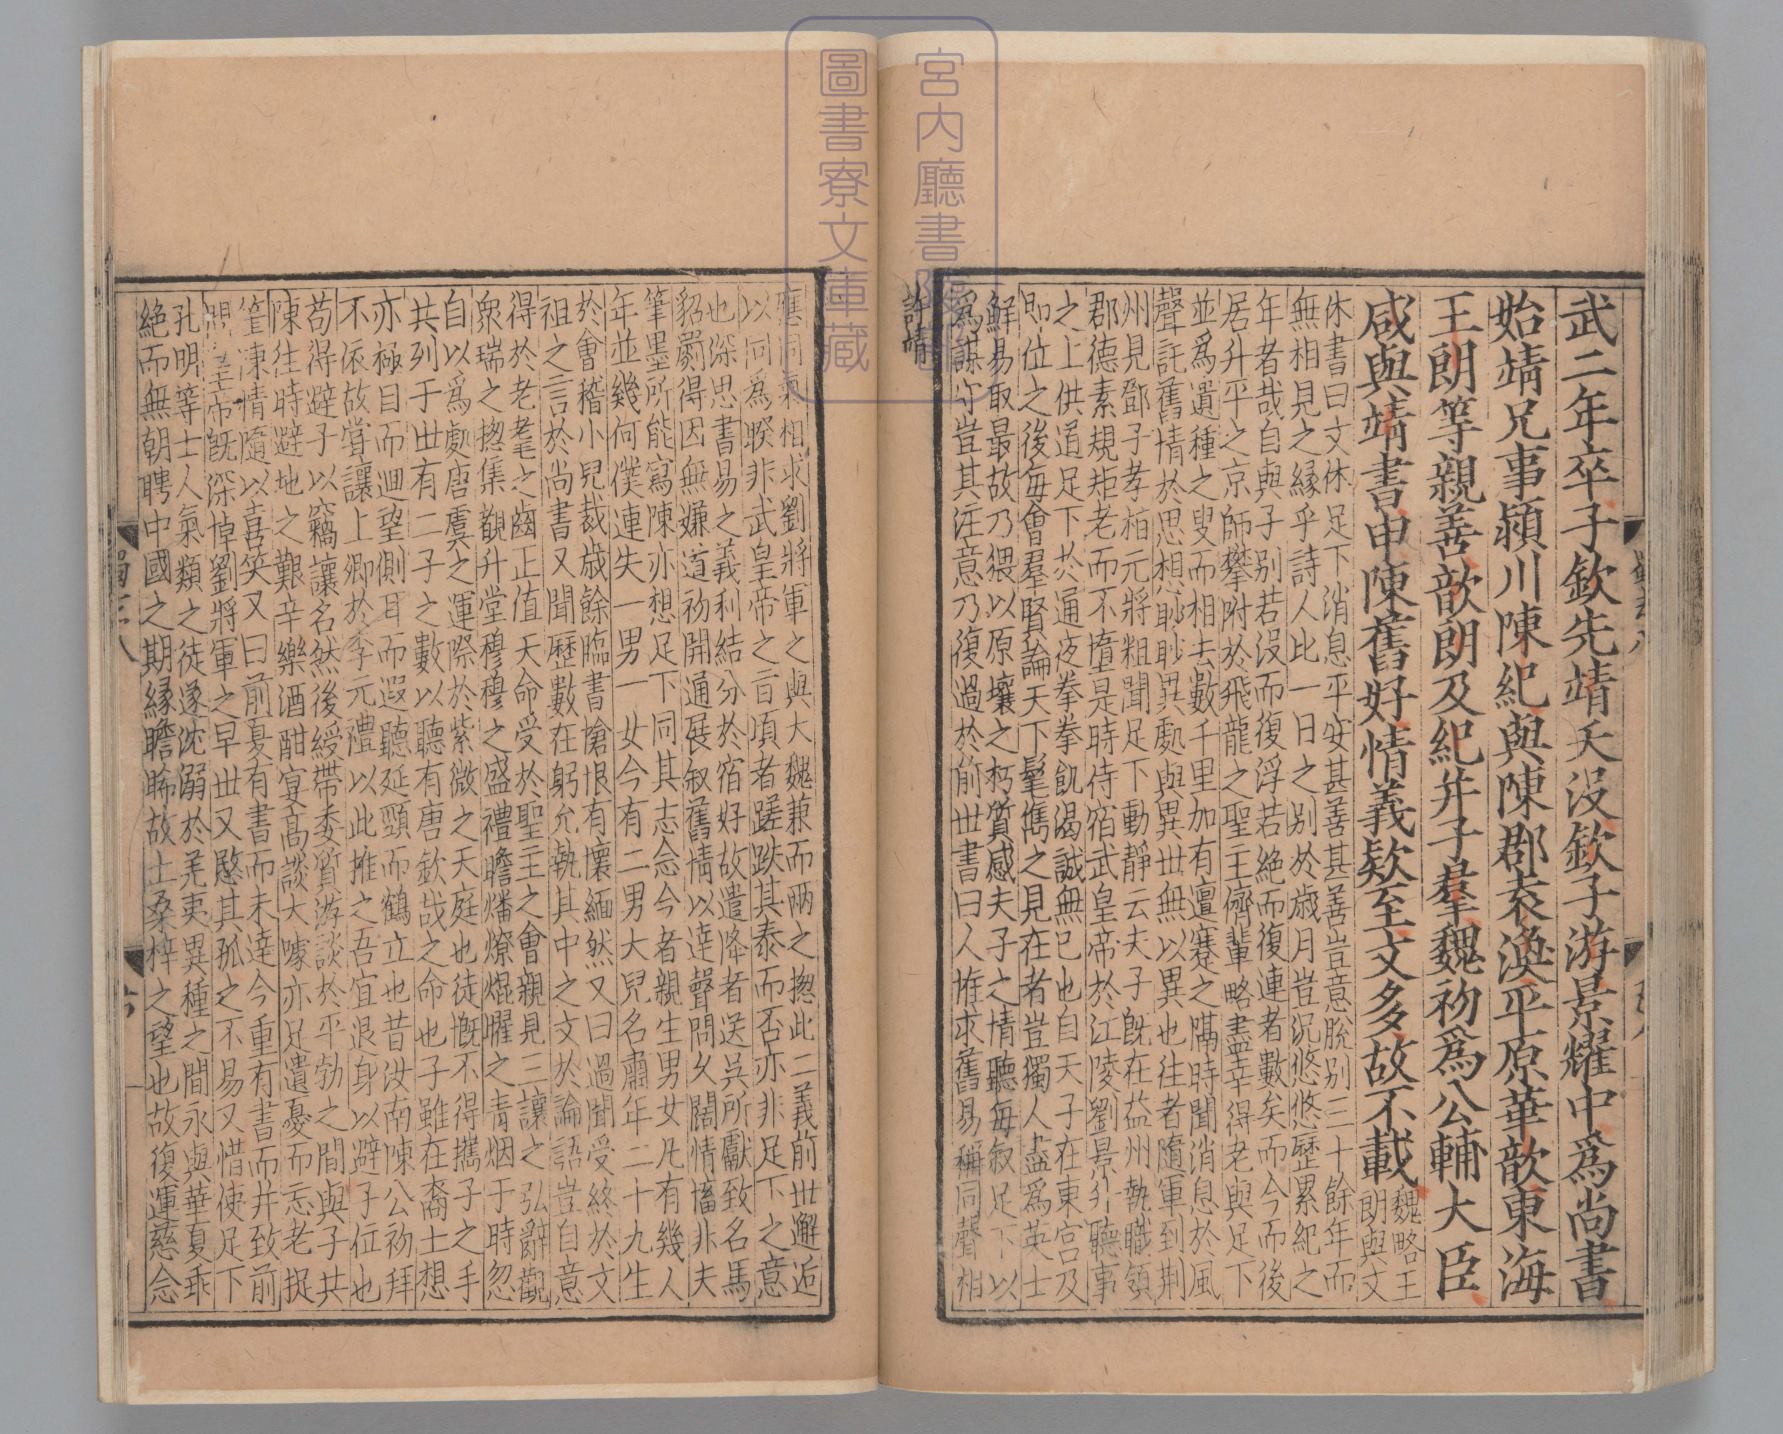 武二年卒子欽先靖夭没欽子游景耀中爲尚書
始靖兄事潁川陳紀與陳郡袁渙平原華歆東海
王朗等親善歆朗及紀并子羣魏初爲公輔大臣
咸與靖書申陳舊好情義欵至文多故不載
魏略王
朗與文
休書曰文休足下消息平安甚善甚善豈意脫别三十餘年而
無相見之縁乎詩人比一日之别於歳月豈況悠悠歷累紀之
年者哉自與子别若没而復浮若絶而復連者數矣而今而後
居升平之京師攀附於飛龍之聖主儕輩略盡幸得老與足下
並爲遺種之叟而相去數千里加有邅蹇之隔時聞消息於風
聲託舊情於思想眇眇異處與異世無以異也往者隨軍到荆
州見鄧子孝桓元將粗聞足下動靜云夫子旣在益州執職領
郡德素規矩老而不墮是時侍宿武皇帝於江陵劉景升聽事
之上供道足下於通夜拳拳飢渴誠無已也自天子在東宫及
即位之後每會羣賢論天下髦儁之見在者豈獨人盡爲英士
鮮易取最故乃猥以原壤之朽質感夫子之情聽每敘足下以
爲謀首豈其注意乃復過於前世書曰人惟求舊易稱同聲相
許靖
應同氣相求劉將軍之與大魏兼而兩之揔此二義前世邂逅
以同爲睽非武皇帝之旨頃者蹉跌其泰而否亦非足下之意
也深思書易之義利結分於宿好故遣降者送吳所獻致名馬
貂罽得因無嫌道初開通展叙舊情以達聲問久闊情慉非夫
筆墨所能寫陳亦想足下同其志念今者親生男女凡有幾人
年並幾何僕連失一男一女今有二男大兒名肅年二十九生
於會稽小兒裁歳餘臨書愴恨有懷緬然又曰過聞受終於文
祖之言於尚書又聞歷數在躬允執其中之文於論語豈自意
得於老耄之齒正值天命受於聖主之會親見三讓之弘辭觀
衆瑞之揔集覩升堂穆穆之盛禮瞻燔燎焜曜之青烟于時忽
自以爲處唐虞之運際於紫微之天庭也徒慨不得攜子之手
共列于世有二子之數以聽有唐欽哉之命也子雖在裔土想
亦極目而迴望側耳而遐聽延頸而鶴立也昔汝南陳公初拜
不依故常讓上卿於李元禮以此推之吾宜退身以避子位也
苟得避子以竊讓名然後綬帶委質游談於平勃之間與子共
陳往時避地之艱辛樂酒酣宴高談大噱亦足遺憂而忘老捉
筆陳情隨以喜笑又曰前夏有書而未達今重有書而并致前
問皇帝旣深悼劉將軍之早世又愍其孤之不易又惜使足下
孔明等士人氣類之徒遂沈溺於羌夷異種之間永與華夏乖
絶而無朝聘中國之期縁瞻晞故土桑梓之望也故復運慈念
宮内廳書陵部
圖書寮文庫藏